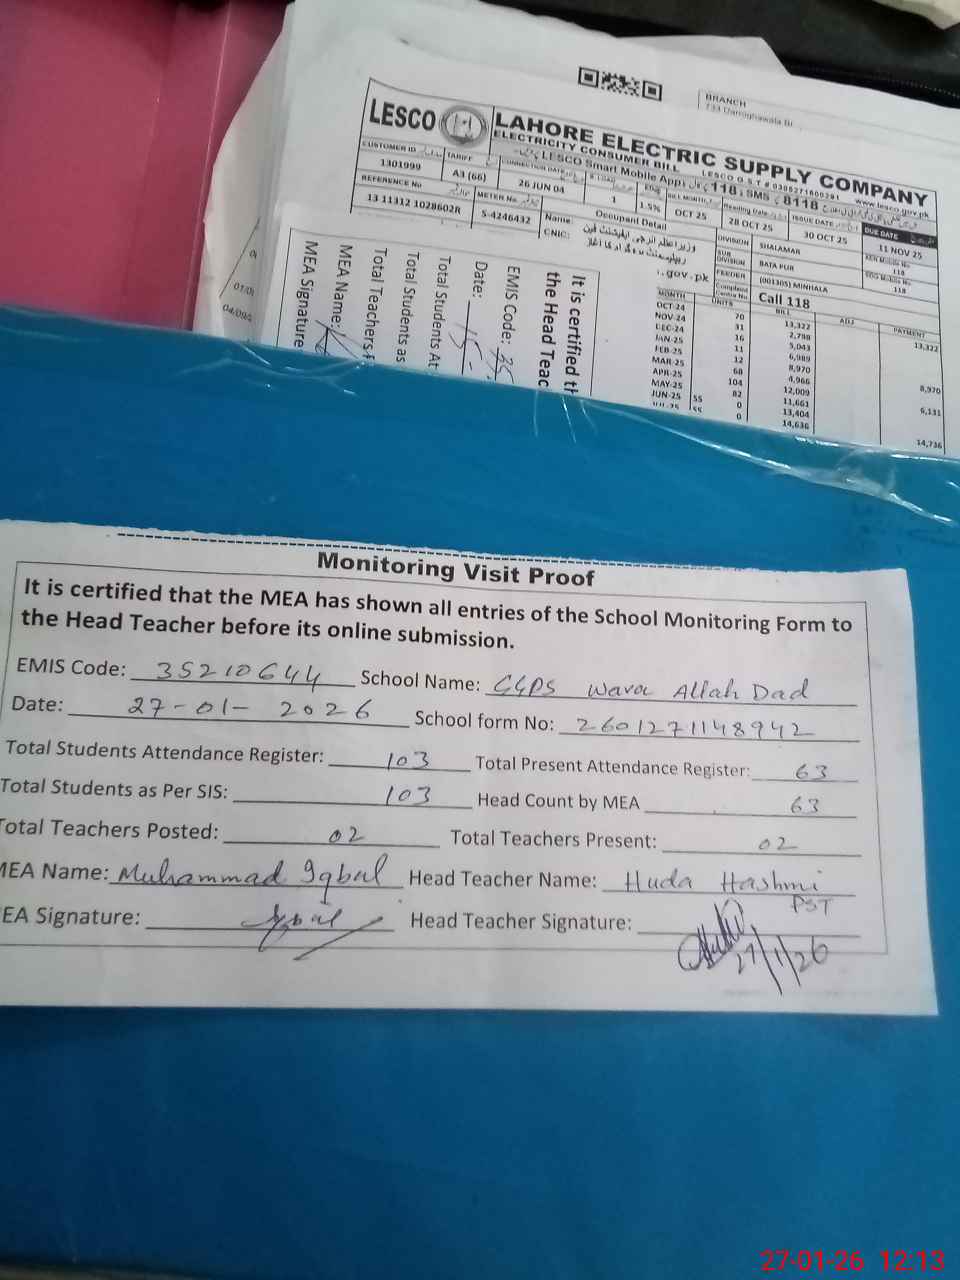 BRANCH
LESCO
LAHORE ELECTRIC SUPPLY COMPANY
ELECTRICITY CONSUMER BILL
LESCO G S T # 0305271600291
www.lesco.gov.pk
LESCO Smart Mobile App
118 SMS 8118
CUSTOMER ID TARIFF CONNECTION DATE
1301999 A3 (66) 26 JUN 04 1 1.5% OCT 25 28 OCT 25 30 OCT 25
BILL MONTH Reading Date ISSUE DATE DUE DATE
11 NOV 25
REFERENCE No METER No
13 11312 1028602R S-4246432
Occupant Detail
Name:
CNIC:
.gov.pk
DIVISION SHALAMAR
SUB DIVISION BATA PUR
FEEDER (001305) MINHALA
118
118
Call 118
MONTH UNITS BILL ADJ PAYMENT
OCT-24 70 13,322 13,322
NOV-24 31 2,798
DEC-24 16 5,043
JAN-25 11 6,989
FEB-25 12 8,970 8,970
MAR-25 68 4,966
APR-25 104 12,009 6,131
MAY-25 82 11,661
JUN-25 SS 0 13,404
SS 0 14,636 14,736
It is certified
the Head Teac
EMIS Code: 35
Date: 15-
Total Students At
Total Students as
Total Teachers
MEA Name:
MEA Signature
Monitoring Visit Proof
It is certified that the MEA has shown all entries of the School Monitoring Form to
the Head Teacher before its online submission.
EMIS Code: 35210644 School Name: GGPS Wara Allah Dad
Date: 27-01-2026 School form No: 2601271148942
Total Students Attendance Register: 103 Total Present Attendance Register: 63
Total Students as Per SIS: 103 Head Count by MEA 63
Total Teachers Posted: 02 Total Teachers Present: 02
MEA Name: Muhammad Iqbal Head Teacher Name: Huda Hashmi
PST
EA Signature: Iqbal Head Teacher Signature:
27/1/26
27-01-26 12:13